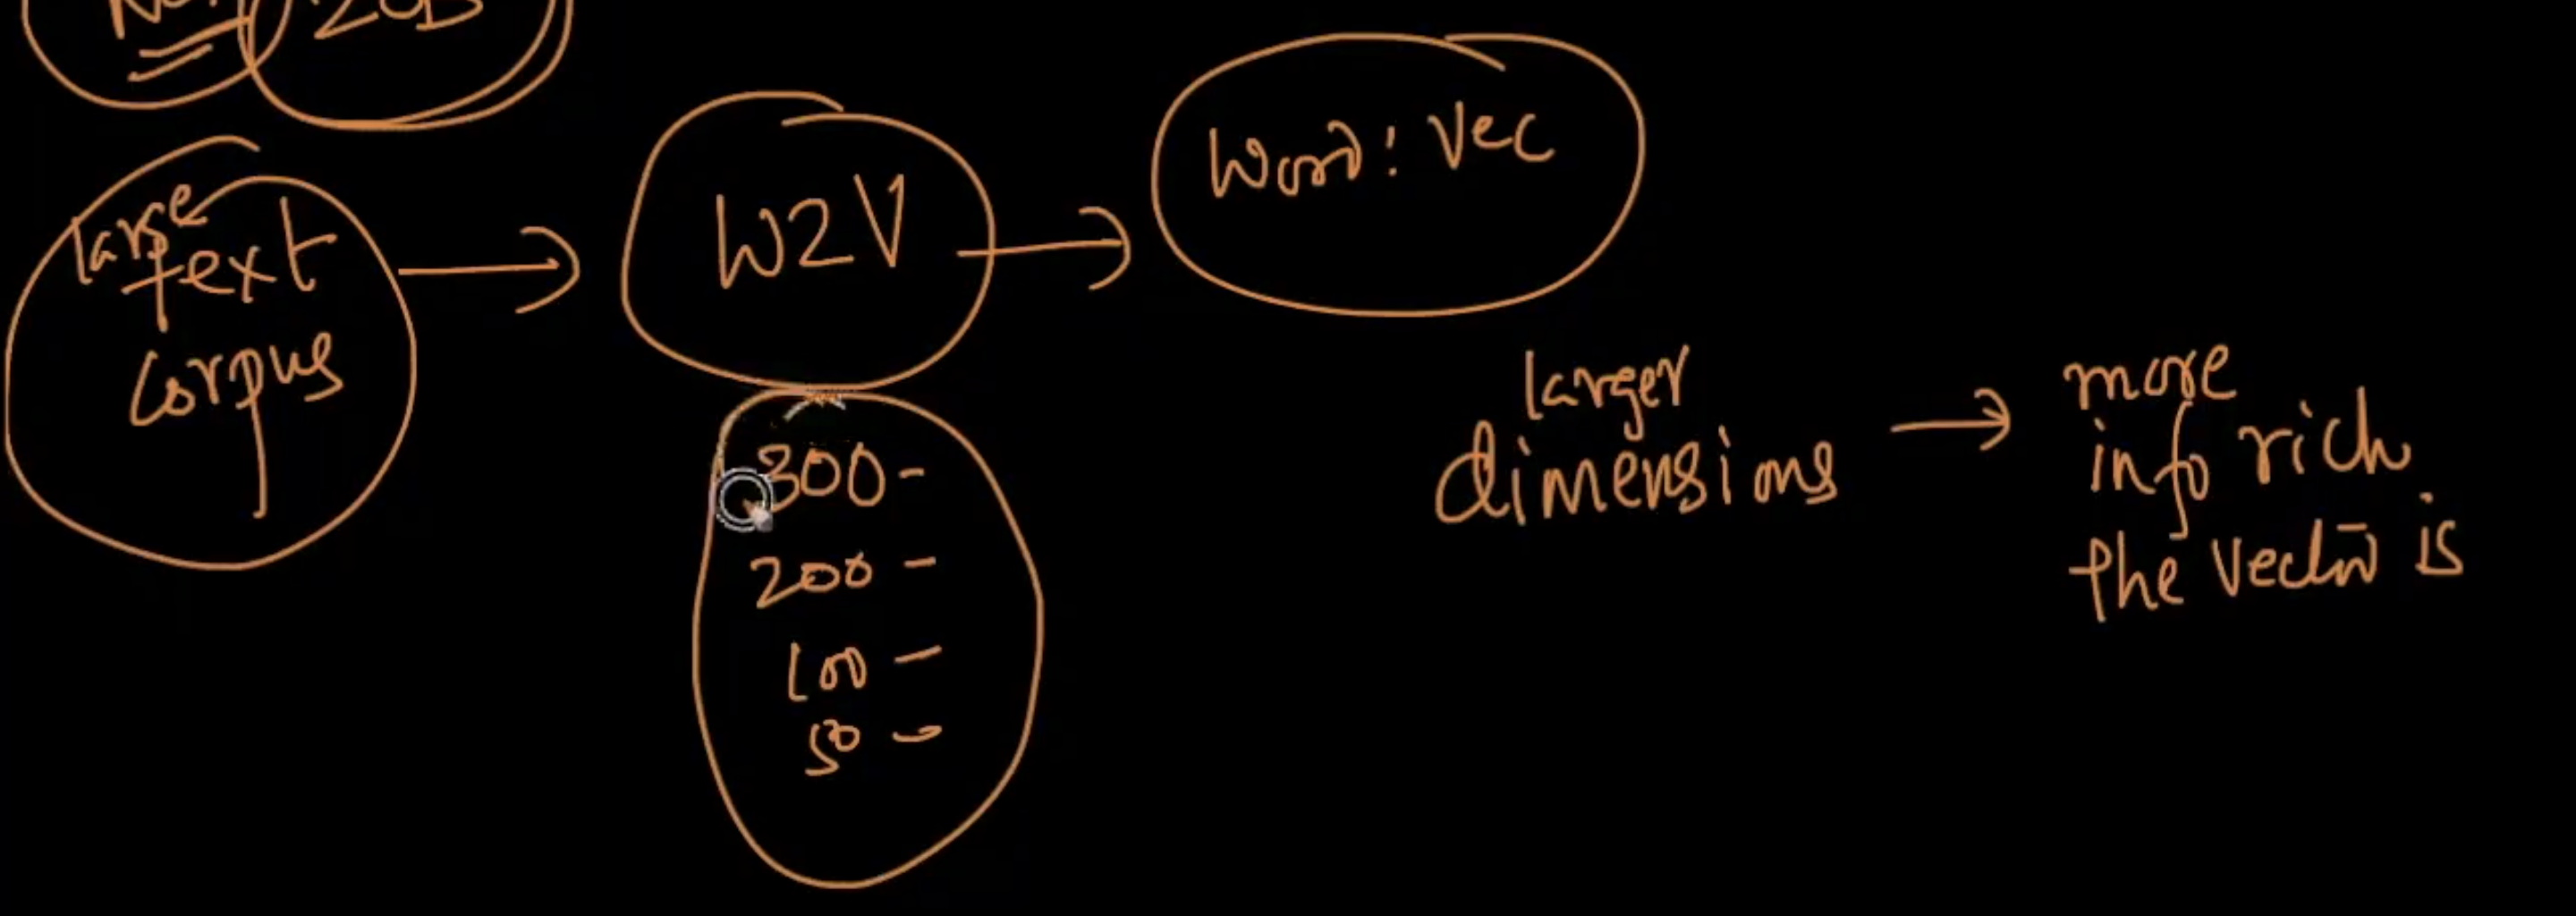 20D
large
text
corpus
W2V
Word: Vec
300-
200-
100-
50-
larger
dimensions
more
info rich
the vector is